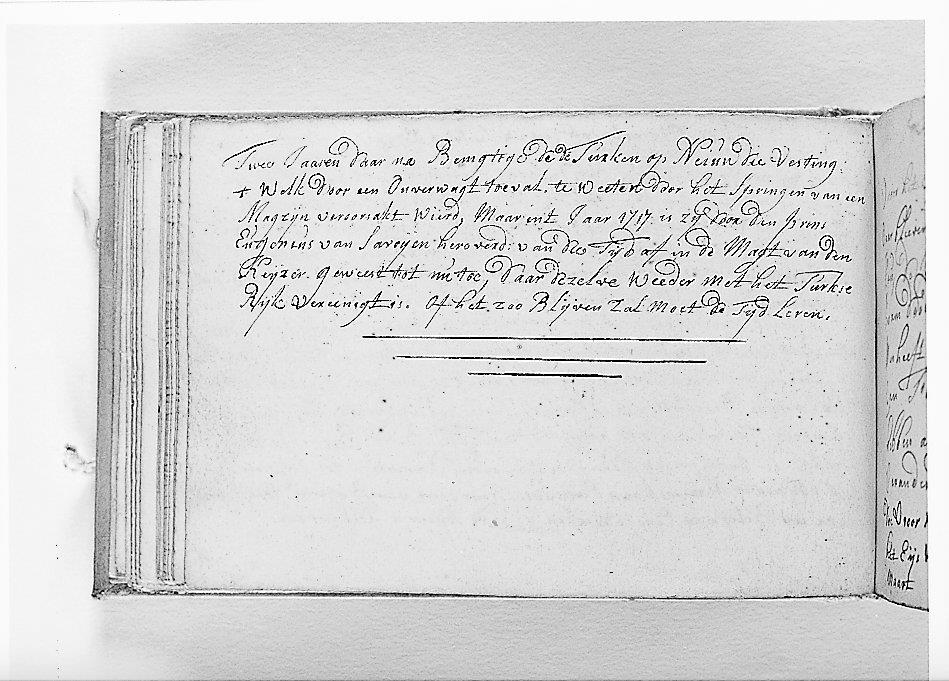 Twee Jaaren daar na Bemgtigde de Turken op Nieuw die Vesting:
+ Welk door een Onverwagt toeval. te weeten door het Springen van een
Magzyn veroorsakt wierd, Maar int Jaar 1717. is zÿ door den prins
Eugenius van Savoyen heroverd: van die Tÿd af in de Magt van den
Keÿzer. geweest tot nu toe, daar dezelve Weeder met het Turkse
Rÿk Vereenigt is. Of het zoo Blÿven Zal moet de Tÿd Leren.
van
heeft
van de
Door
het Eÿs
Maart